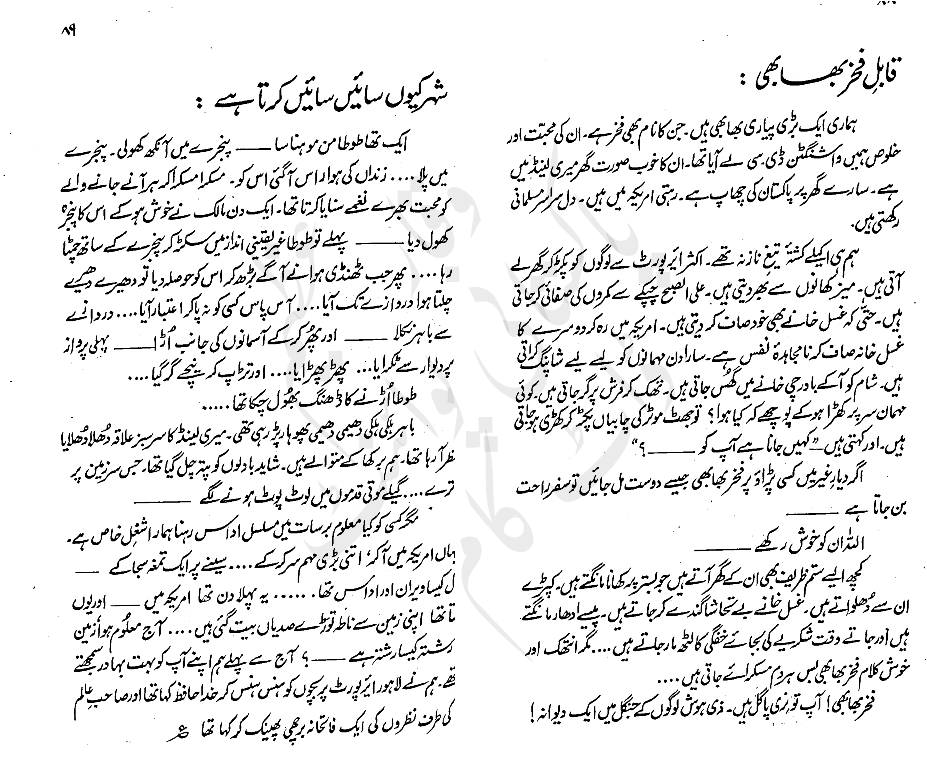 قابلِ فخر بھابھی :
ہماری ایک بڑی پیاری بھابھی ہیں۔ جن کا نام بھی فخر ہے۔ ان کی محبت اور
خلوص ہمیں واشنگٹن ڈی۔سی لے آیا تھا۔ ان کا خوب صورت گھر میری لینڈ میں
ہے۔ سارے گھر پر پاکستان کی چھاپ ہے۔ رہتی امریکہ میں ہیں۔ دل سراسر مسلمانی
رکھتی ہیں۔
ہم ہی اکیلے کشتۂ تیغِ ناز نہ تھے۔ اکثر ائیرپورٹ سے لوگوں کو پکڑ کر گھر لے
آتی ہیں۔ میز کھانوں سے بھر دیتی ہیں۔ علی الصبح چپکے سے کمروں کی صفائی کر جاتی
ہیں۔ حتیٰ کہ غسل خانے بھی خود صاف کر دیتی ہیں۔ امریکہ میں رہ کر دوسرے کا
غسل خانہ صاف کرنا مجاہدۂ نفس ہے۔ سارا دن مہمانوں کو لیے لیے شاپنگ کراتی
ہیں۔ شام کو آکے باورچی خانے میں گھس جاتی ہیں۔ تھک کر فرش پر گر جاتی ہیں۔ کوئی
مہمان سر پر کھڑا ہو کے پوچھے کہ کیا ہوا؟ تو جھٹ موٹر کی چابیاں پکڑ کر کھڑی ہو جاتی
ہیں۔ اور کہتی ہیں۔ "کہیں جانا ہے آپ کو ——— ؟"
اگر دیارِ غیر میں کسی پڑاؤ پر فخر بھابھی جیسے دوست مل جائیں تو سفر راحت
بن جاتا ہے ———
اللہ ان کو خوش رکھے ———
کچھ ایسے ستم ظریف بھی ان کے گھر آتے ہیں جو بستر پر کھانا مانگتے ہیں۔ کپڑے
ان سے دھلواتے ہیں۔ غسل خانے بے تحاشا گندے کر جاتے ہیں۔ پیسے ادھار مانگتے
ہیں اور جاتے وقت شکریے کی بجائے خفگی کا لٹھ مار جاتے ہیں .... مگر انتھک اور
خوش کلام فخر بھابھی بس ہر دم مسکرائے جاتی ہیں ....
فخر بھابھی! آپ تو نری پاگل ہیں۔ ذی ہوش لوگوں کے جنگل میں ایک دیوانہ!
۸۹
شہر کیوں سائیں سائیں کرتا ہے :
ایک تھا طوطا من موہنا سا ——— پنجرے میں آنکھ کھولی۔ پنجرے
میں پلا .... زنداں کی ہوا راس آگئی اس کو۔ مسکرا مسکرا کر ہر آنے جانے والے
کو محبت بھرے نغمے سنایا کرتا تھا۔ ایک دن مالک نے خوش ہو کے اس کا پنجرہ
کھول دیا ——— پہلے تو طوطا غیر یقینی انداز میں سکڑ کر پنجرے کے ساتھ چمٹا
رہا .... پھر جب ٹھنڈی ہوا نے آگے بڑھ کر اس کو حوصلہ دیا تو دھیرے دھیرے
چلتا ہوا دروازے تک آیا .... آس پاس کسی کو نہ پا کر اعتبار آیا .... دروازے
سے باہر نکلا ——— اور پھُر کر کے آسمانوں کی جانب اُڑا ——— پہلی پرواز
پر دیوار سے ٹکرایا ... پھڑپھڑایا .... اور تڑپ کر نیچے گر گیا ....
طوطا اُڑنے کا ڈھنگ بھول چکا تھا .....
باہر ہلکی ہلکی دھیمی دھیمی پھوہار پڑ رہی تھی۔ میری لینڈ کا سرسبز علاقہ دھلا دھلایا
نظر آ رہا تھا۔ ہم برکھا کے متوالے ہیں۔ شاید بادلوں کو پتہ چل گیا تھا۔ جس سرزمین پر
اترے .... گیلے موتی قدموں میں لوٹ پوٹ ہونے لگے ———
مگر کسی کو کیا معلوم برسات میں مسلسل اداس رہنا ہمارا شغلِ خاص ہے۔
ہاں امریکہ میں آ کر؛ اتنی بڑی مہم سر کر کے .... سینے پر ایک تمغہ سجا کے ———
دل کیسا ویران اور اداس تھا ..... یہ پہلا دن تھا امریکہ میں ——— اور یوں
لگتا تھا اپنی زمین سے ناطہ توڑے صدیاں بیت گئی ہیں .... آج معلوم ہوا زمین
رشتہ کیسا رشتہ ہے ——— ؟ آج سے پہلے ہم اپنے آپ کو بہت بہادر سمجھتے
تھے۔ ہم نے لاہور ائیرپورٹ پر بچوں کو ہنس ہنس کر خدا حافظ کہا تھا اور صاحبِ عالم
کی طرف نظروں کی ایک فاتحانہ برچھی پھینک کر کہا تھا ؏